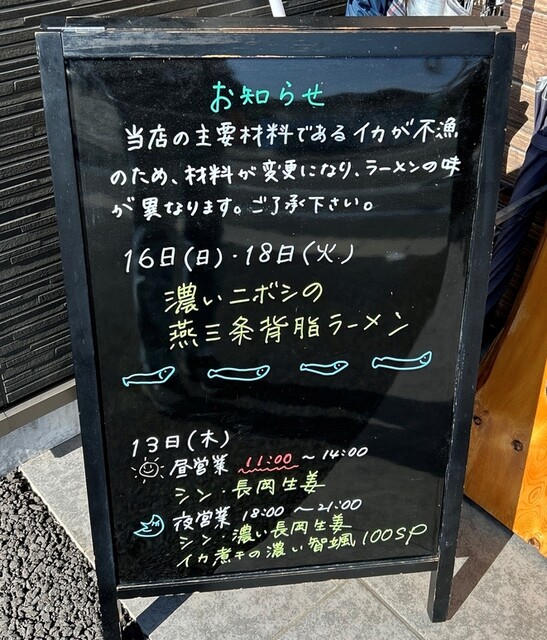 お知らせ
当店の主要材料であるイカが不漁
のため、材料が変更になり、ラーメンの味
が異なります。ご了承下さい。
16日(日)・18日(火)
濃いニボシの
燕三条背脂ラーメン
13日(木)
昼営業 11:00 ～14:00
シン・長岡生姜
夜営業 18:00 ～21:00
シン・濃い長岡生姜
イカ煮干の濃い智颯100SP